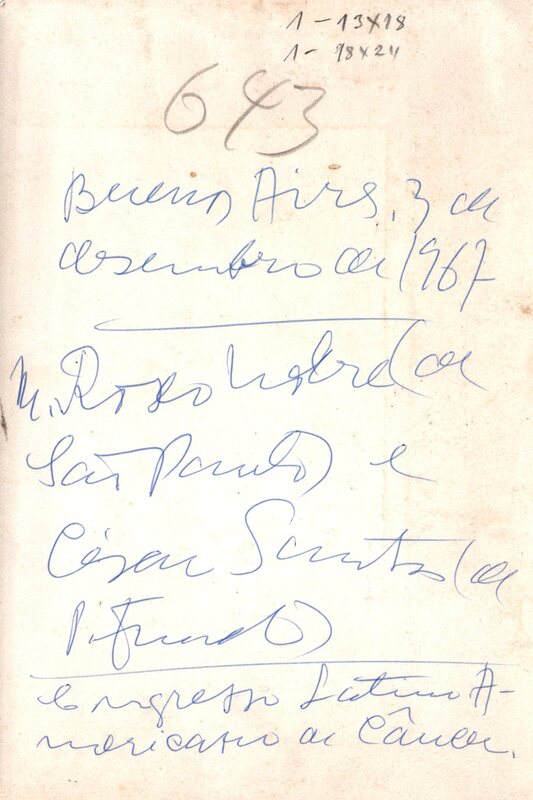 1 - 13X18
1 - 18X24
643
Buenos Aires, 3 de
dezembro de 1967
M. Roxo Nobre (de
São Paulo) e
César Santos (de
P. Fundo)
Congresso Latino A-
mericano de Câncer.